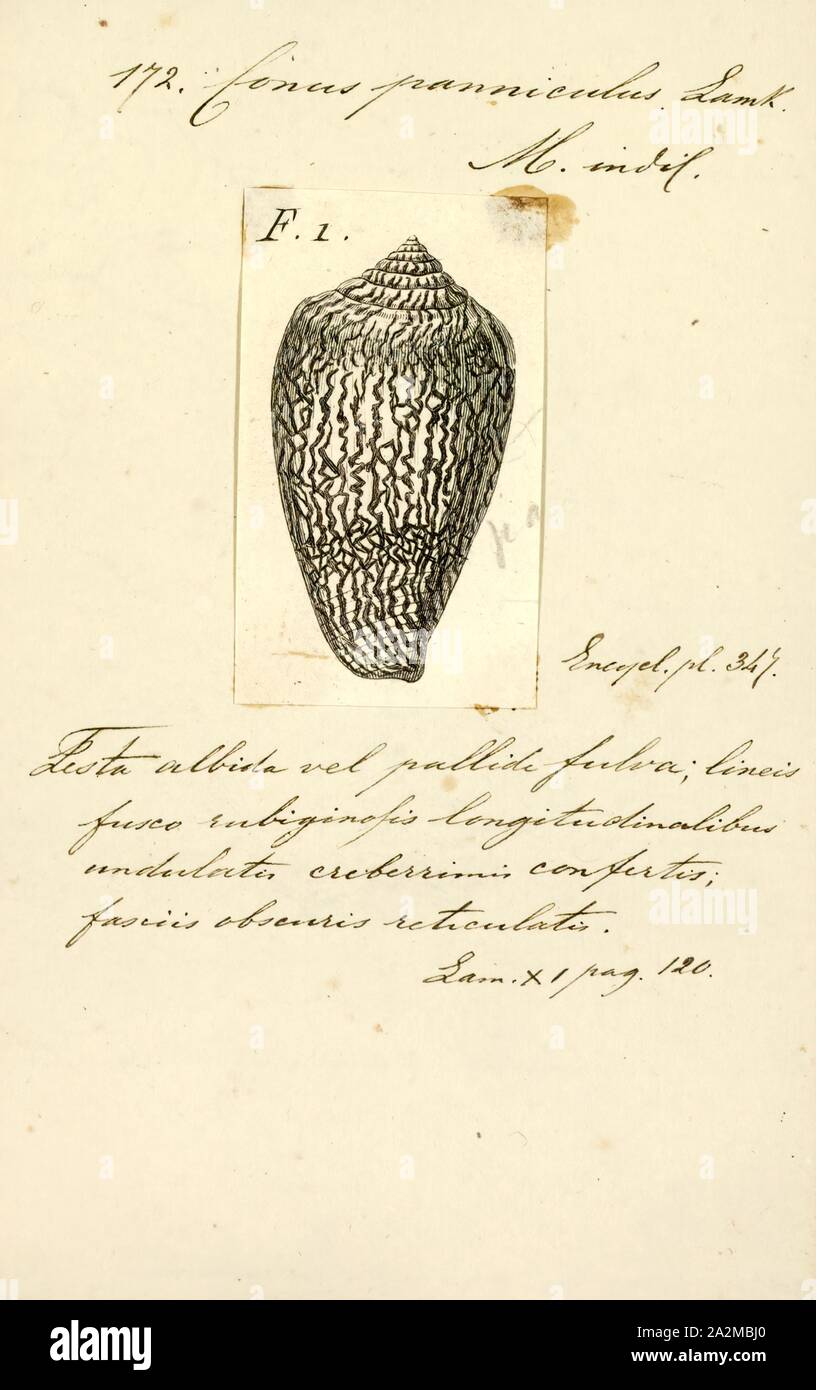 172. Conus panniculus Lamk.
M. indil.
F. 1.
Encycl. pl. 347.
Testa albida vel pallide fulva; lineis
fusco rubiginosis longitudinalibus
undulatis creberrimis confertis;
fasciis obscuris reticulatis.
Lam. X 1 pag. 120.
alamy
Image ID: 2A2MBJ0
www.alamy.com